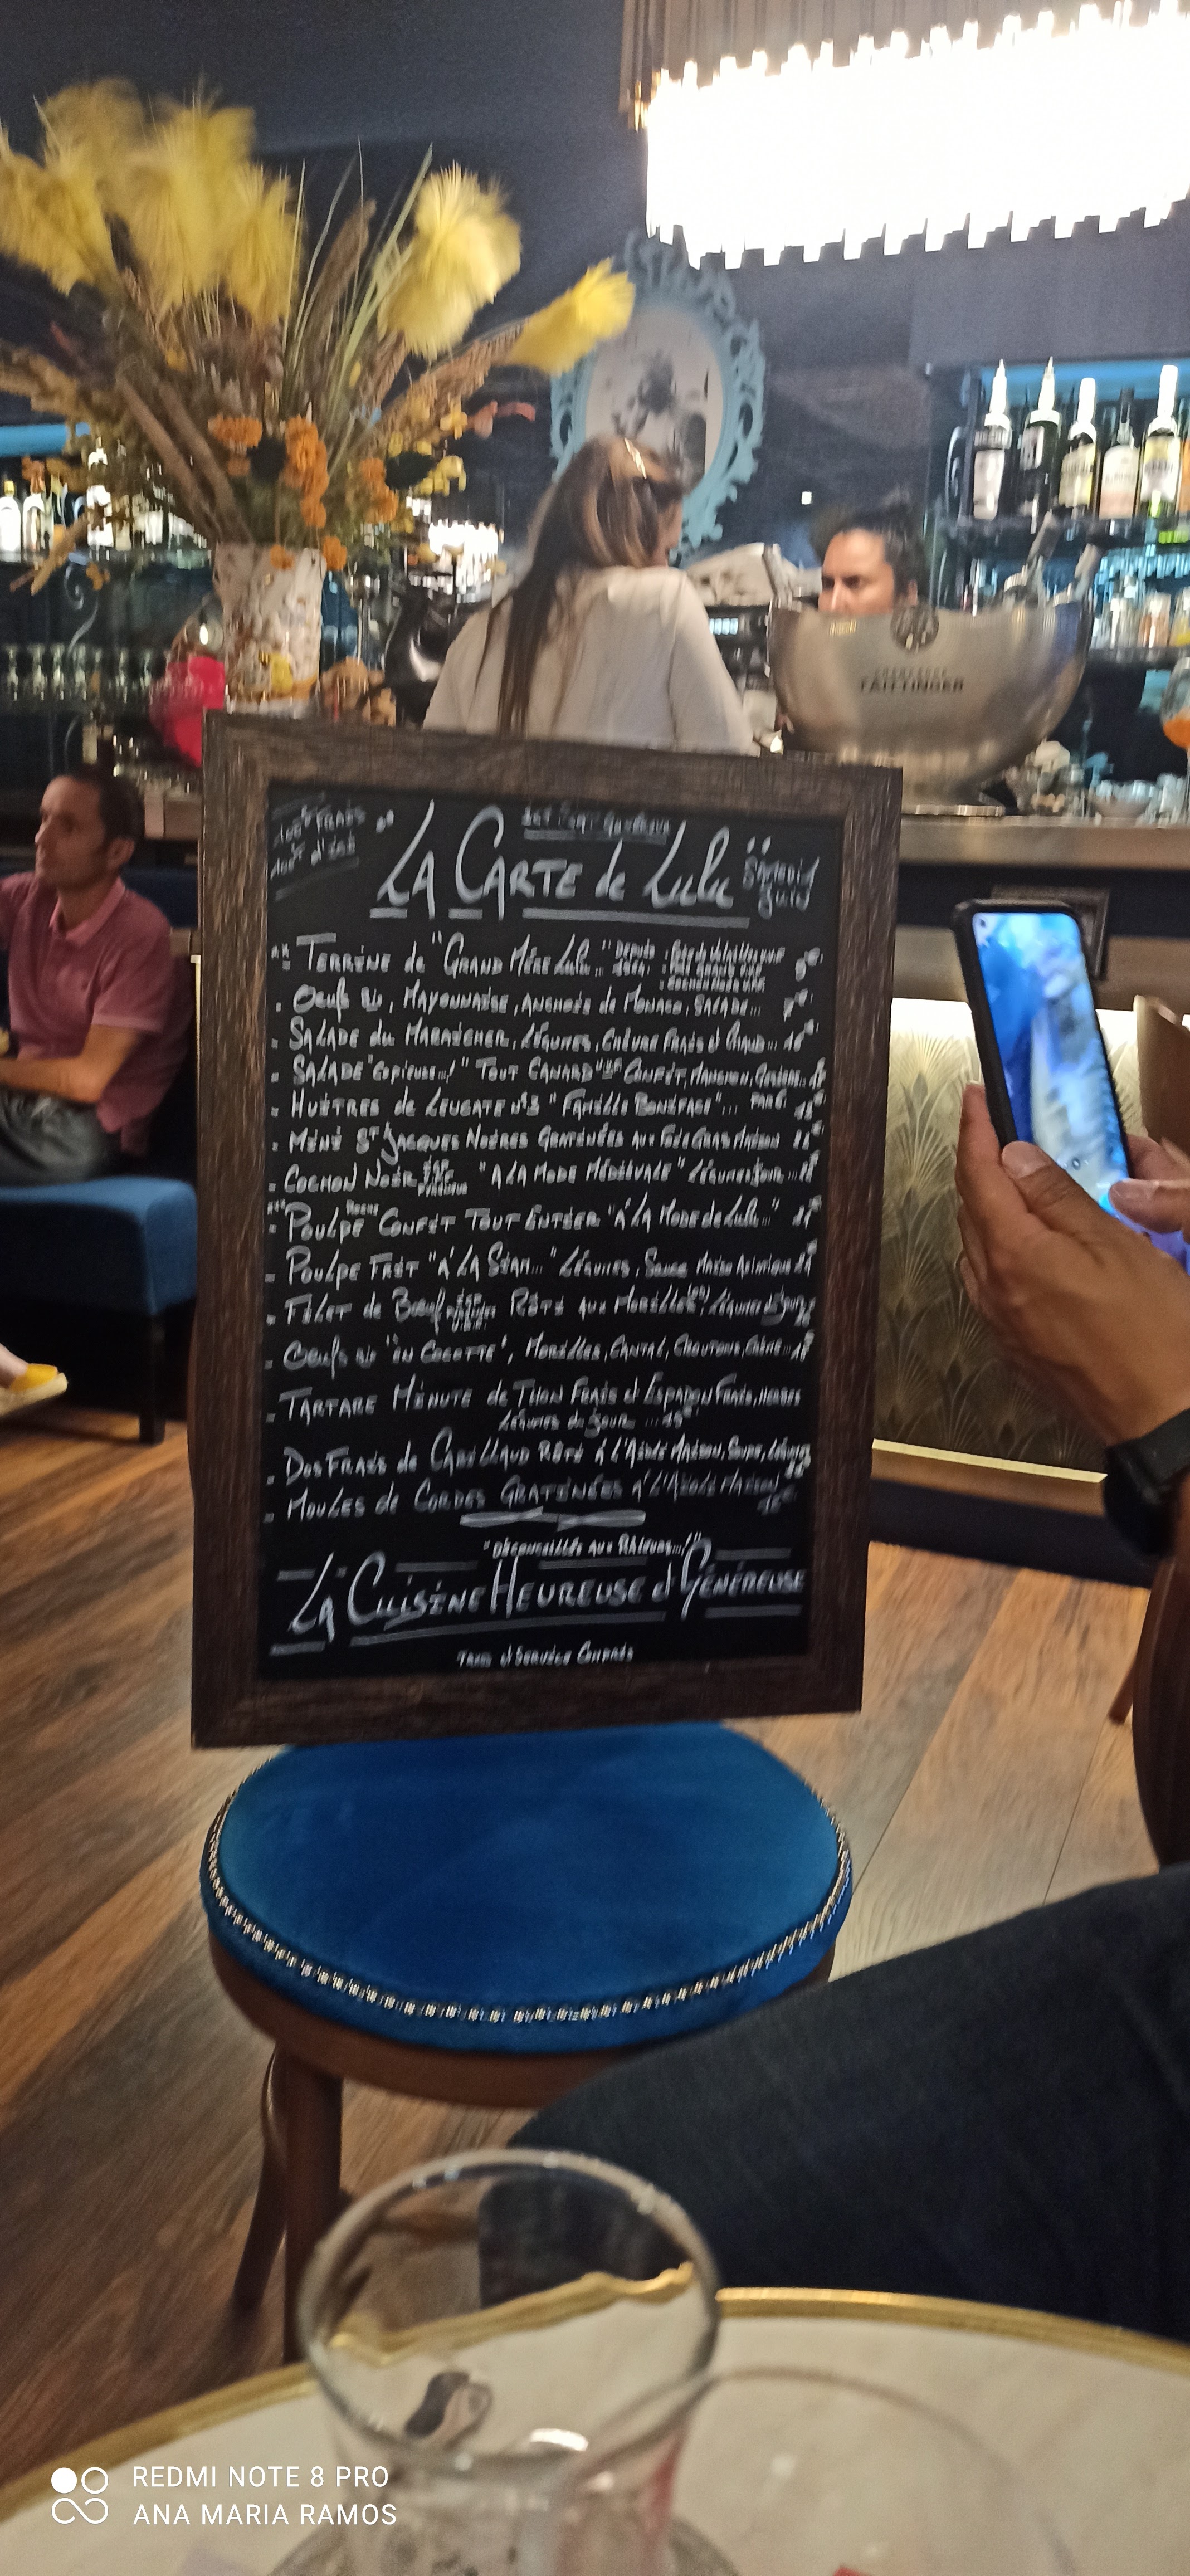 TAITTINGER
100% FRAIS
"LA CARTE de LuLu"
SAMEDI
JUIN
TERRINE de "GRAND MÈRE LuLu..."
Oeufs Bio, MAYONNAISE, ANCHOIS de MONACO, SALADE...
SALADE du MARAÎCHER, LÉGUMES, CHÈVRE FRAIS et CHAUD...
SALADE "Copieuse...!" TOUT CANARD CONFIT,
HUÎTRES de LEUCATE N°3 "FAMILLE BONIFACE"...
MINI ST JACQUES NOIRES GRATINÉES AUX FOIE GRAS MAISON
COCHON NOIR "A LA MODE MÉDIÉVALE" LÉGUMES JOUR...
POULPE CONFIT TOUT ENTIER "À LA MODE de LuLu..."
POULPE FRIT "À LA SIAM..." LÉGUMES, SAUCE MAISON
FILET de BOEUF RÔTI AUX MORILLES, LÉGUMES du JOUR
Oeufs Bio "EN COCOTTE", MORILLES, CANTAL, CROUTONS, CRÈME...
TARTARE MINUTE de THON FRAIS et ESPADON FRAIS, HERBES
LÉGUMES du JOUR ...
DOS FRAIS de CABILLAUD RÔTI À L'AÏOLI MAISON, SOUPE, LÉGUMES
MOULES de CORDES GRATINÉES À L'AÏOLI MAISON
"DÉCONSEILLÉE AUX RÂLEURS...!"
LA CUISINE HEUREUSE et GÉNÉREUSE
TAXES et SERVICE COMPRIS
REDMI NOTE 8 PRO
ANA MARIA RAMOS